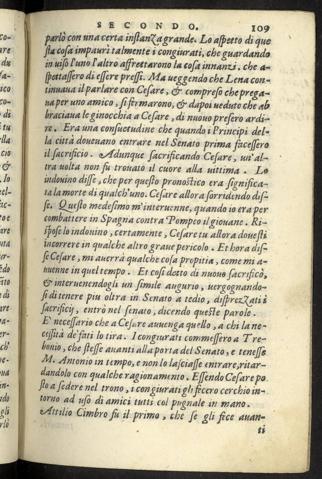 SECONDO. 109
parlò con una certa instanza grande. Lo aspetto di que
sta cosa impaurì talmente i congiurati, che guardando
in viso l'uno l'altro affrettarono la cosa innanzi, che a-
spettassero di essere presi. Ma veggendo che Lena con-
tinuava il parlare con Cesare, & compreso che prega-
ua per uno amico, si fermarono, & dapoi veduto che ab
bracciaua le ginocchia a Cesare, di nuouo presero ardi-
re. Era una consuetudine che quando i Principi del-
la città doueuano entrare nel Senato prima facessero
il sacrificio. Adunque sacrificando Cesare, un'al-
tra uolta non fu trouato il cuore alla uittima. Lo
indouino disse, che per questo pronostico era significa-
ta la morte di qualch'uno. Cesare allora sorridendo dis-
se. Questo medesimo m'interuenne, quando io era per
combattere in Spagna contra Pompeo il giouane. Ri-
spose lo indouino, certamente, Cesare tu allora douesti
incorrere in qualche altro graue pericolo. Et hora dis-
se Cesare, mi auerrà qualche cosa propitia, come mi a-
uuenne in quel tempo. Et così dotto di nuouo sacrificò,
& interuenendogli un simile augurio, uergognando-
si di tenere piu oltra in Senato a tedio, disprezzati i
sacrificij, entrò nel senato, dicendo queste parole.
E' necessario che a Cesare auuenga quello, a chi la ne-
cessità de' fati lo tira. I congiurati commessero a Tre-
bonio, che stesse auanti alla porta del Senato, e tenesse
M. Antonio in tempo, e non lo lasciasse entrare, ritar-
dandolo con qualche ragionamento. Essendo Cesare po
sto a sedere nel trono, i congiurati gli fecero cerchio in-
torno ad uso di amici tutti col pugnale in mano.
Attilio Cimbro fu il primo, che se gli fece auan-
ti